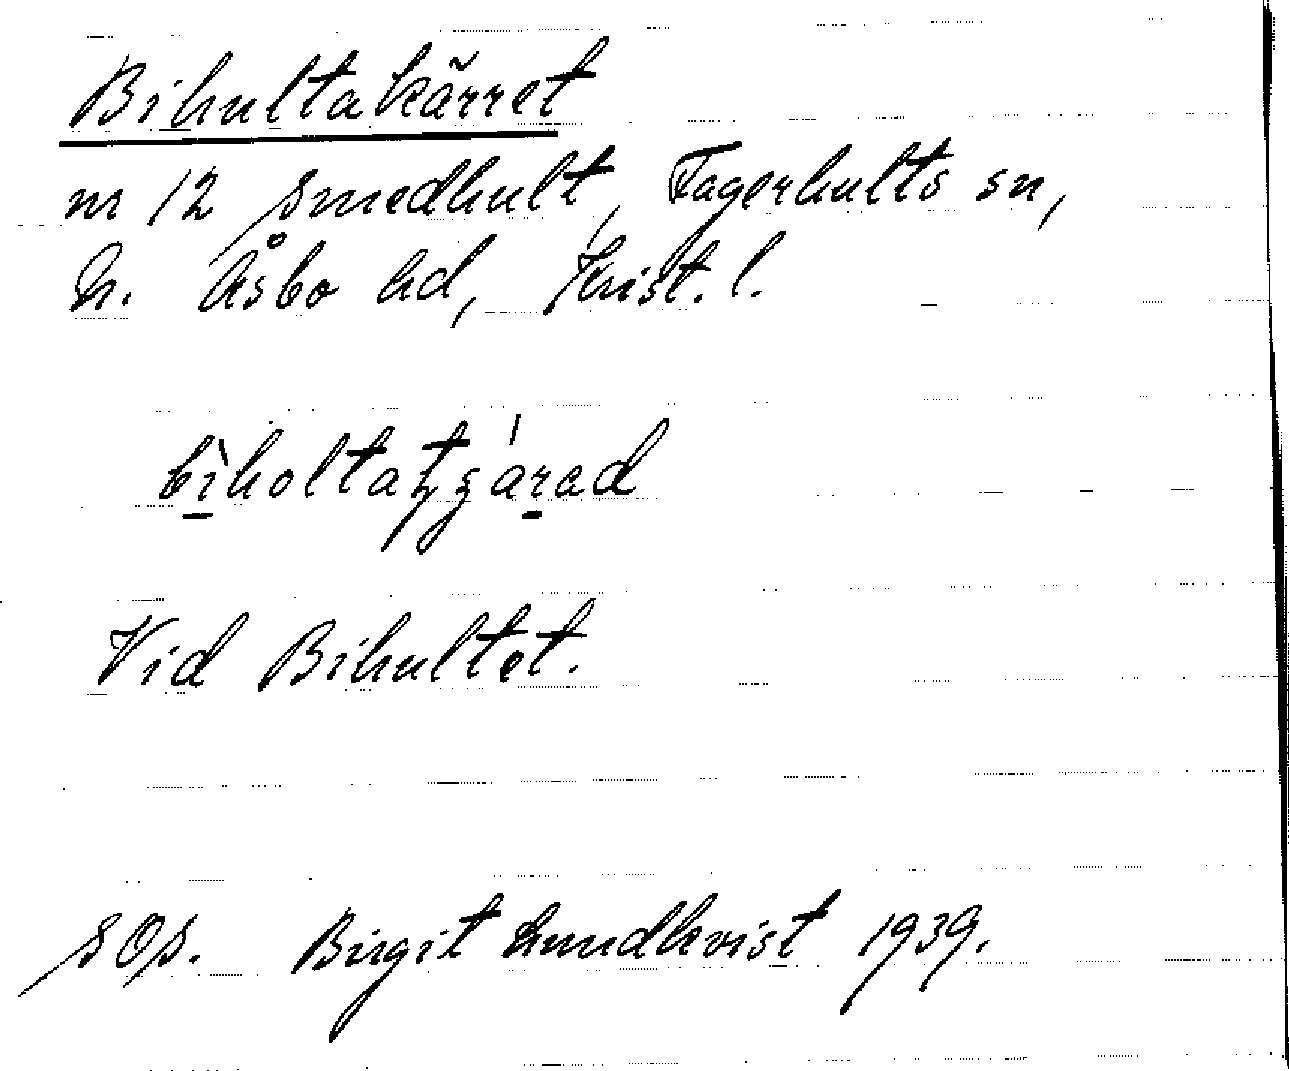 Bihultakärret
nr 12 Smedhult, Fagerhults sn,
N. Åsbo hd, Krist. l.
Vid Bihultet.
SOS. Birgit Lundkvist 1939.